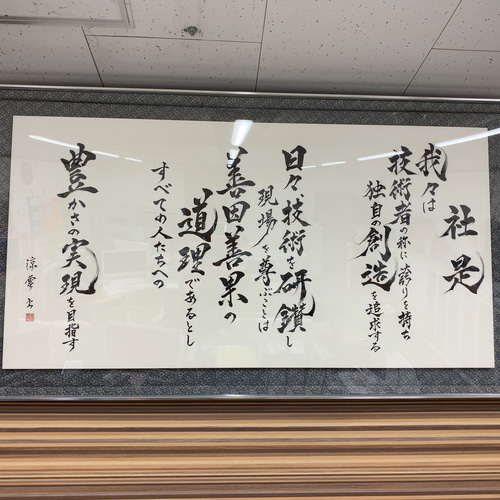 社是
我々は
技術者の称に誇りを持ち
独自の創造を追求する
日々技術を研鑽し
現場を尊ぶことは
善因善果の
道理であるとし
すべての人たちへの
豊かさの実現を目指す
涼雲书